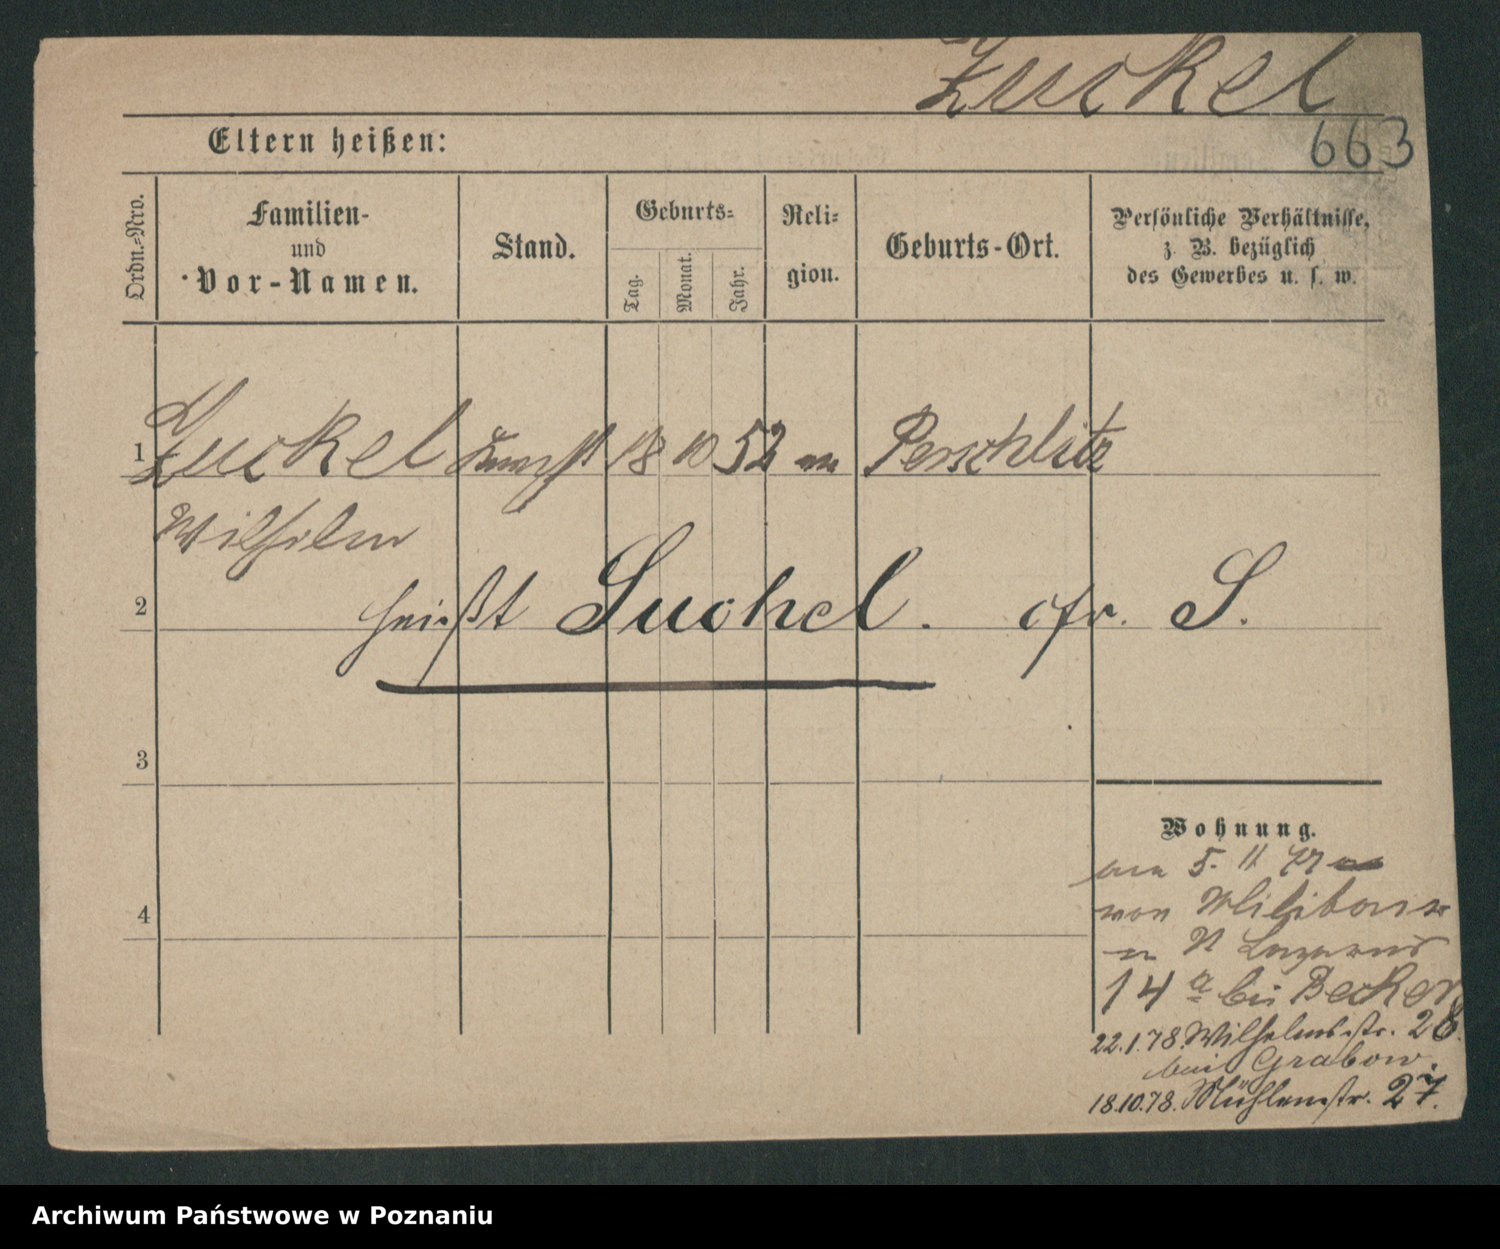 Zuckel
663
Eltern heißen:
Ordn.-Nro.
Familien-
und
Vor-Namen.
Stand.
Geburts-
Tag.
Monat.
Jahr.
Reli-
gion.
Geburts-Ort.
Persönliche Verhältnisse,
z. B. bezüglich
des Gewerbes u. s. w.
1 Zuckel Knecht 18 10 52 ev Perschlitz
Wilhelm
2 heißt Suchel. cfr. S.
3
Wohnung.
am 5. 11 77
von
n Lazarus
4
14 a bei Becker
22.1.78. Wilhelmsstr. 28.
bei Grabow.
18.10.78. Mühlenstr. 27.
Archiwum Państwowe w Poznaniu